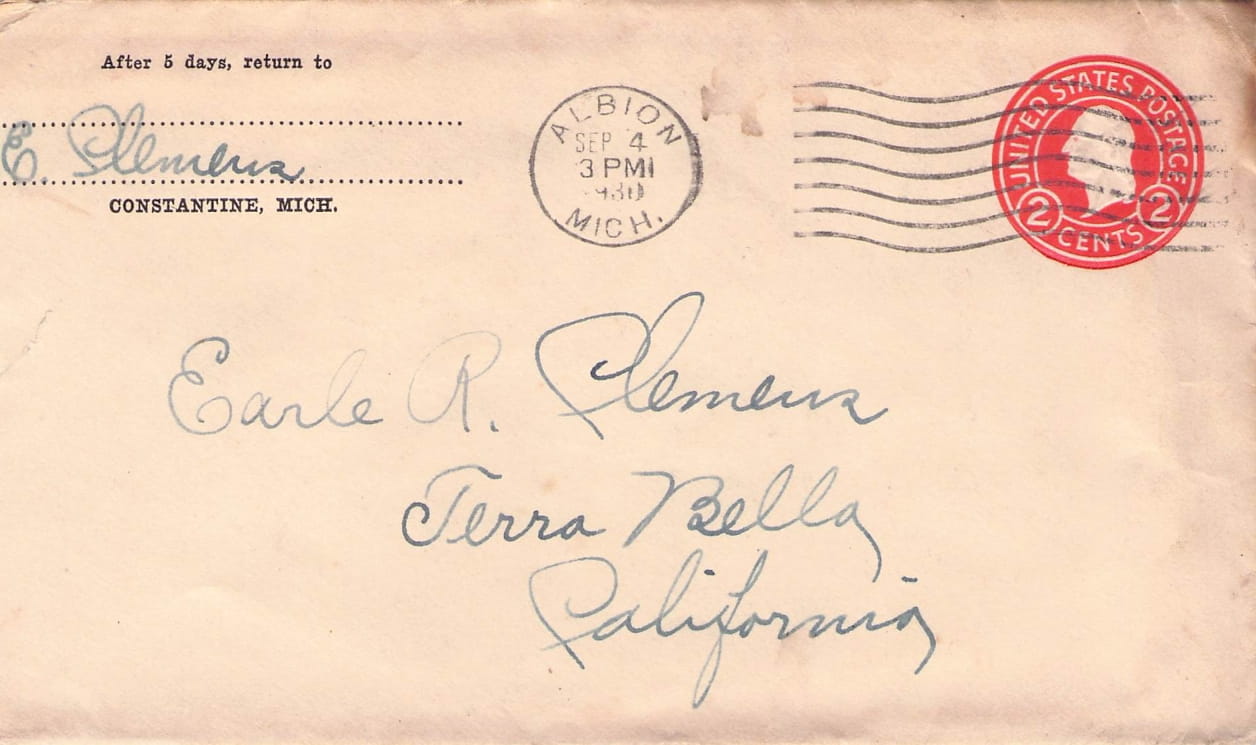 After 5 days, return to
E. Clemens
CONSTANTINE, MICH.
ALBION
SEP 4
3 PM
1930
MICH.
UNITED STATES POSTAGE
2 CENTS 2
Earle R. Clemens
Terra Bella,
California,